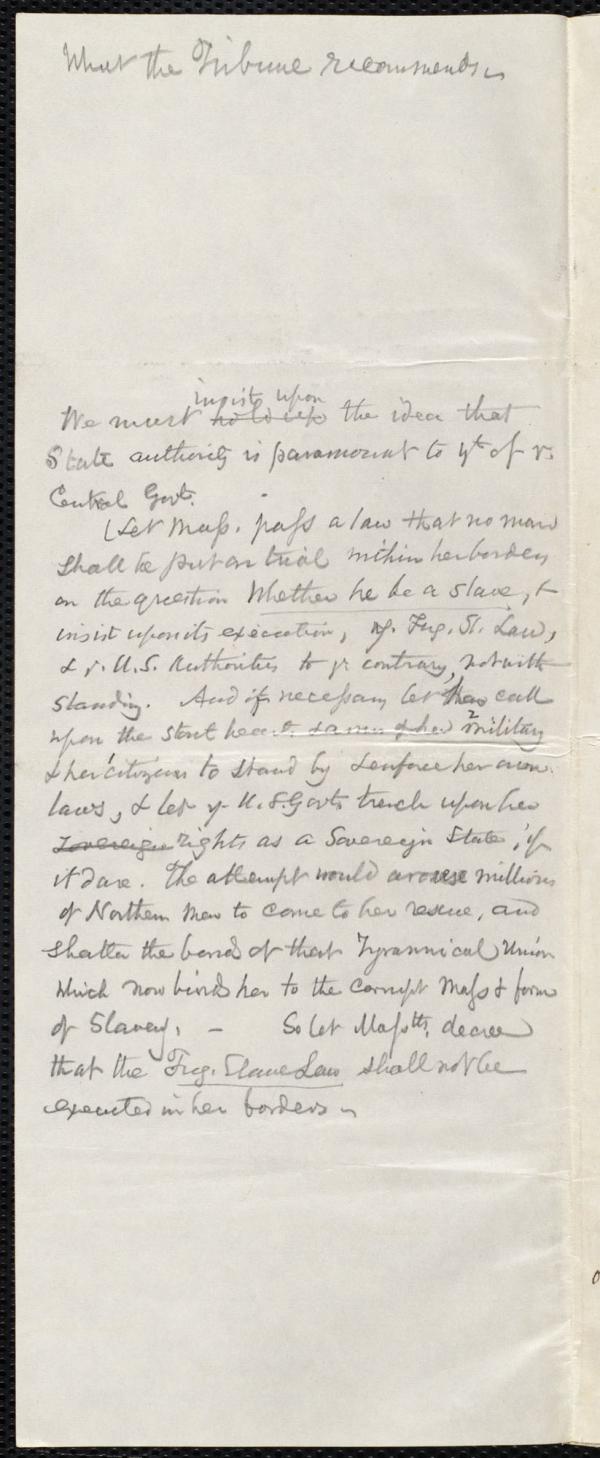 What the Tribune recommends
insist upon
We must hold up the idea that
State authority is paramount to yt of ye
Central Govt.
(Let Mass. pass a law that no man
shall be put on trial within her borders
on the question Whether he be a slave, &
insist upon its execution, Fug. Sl. Law,
& ye U.S. Authorities to ye contrary, notwith
standing. And if necessary let her call
upon the stout heart & arm of her military
& her citizens to stand by & enforce her own
laws, & let ye U.S. Govt. trench upon her
Sovereign rights as a Sovereign State, if
it dare. The attempt would arouse millions
of Northern men to come to her rescue, and
shatter the bond of that Tyrannical Union
which now binds her to the corrupt Mass & form
of Slavery. — So let Masstts. decree
that the Fug. Slave Law shall not be
executed in her borders